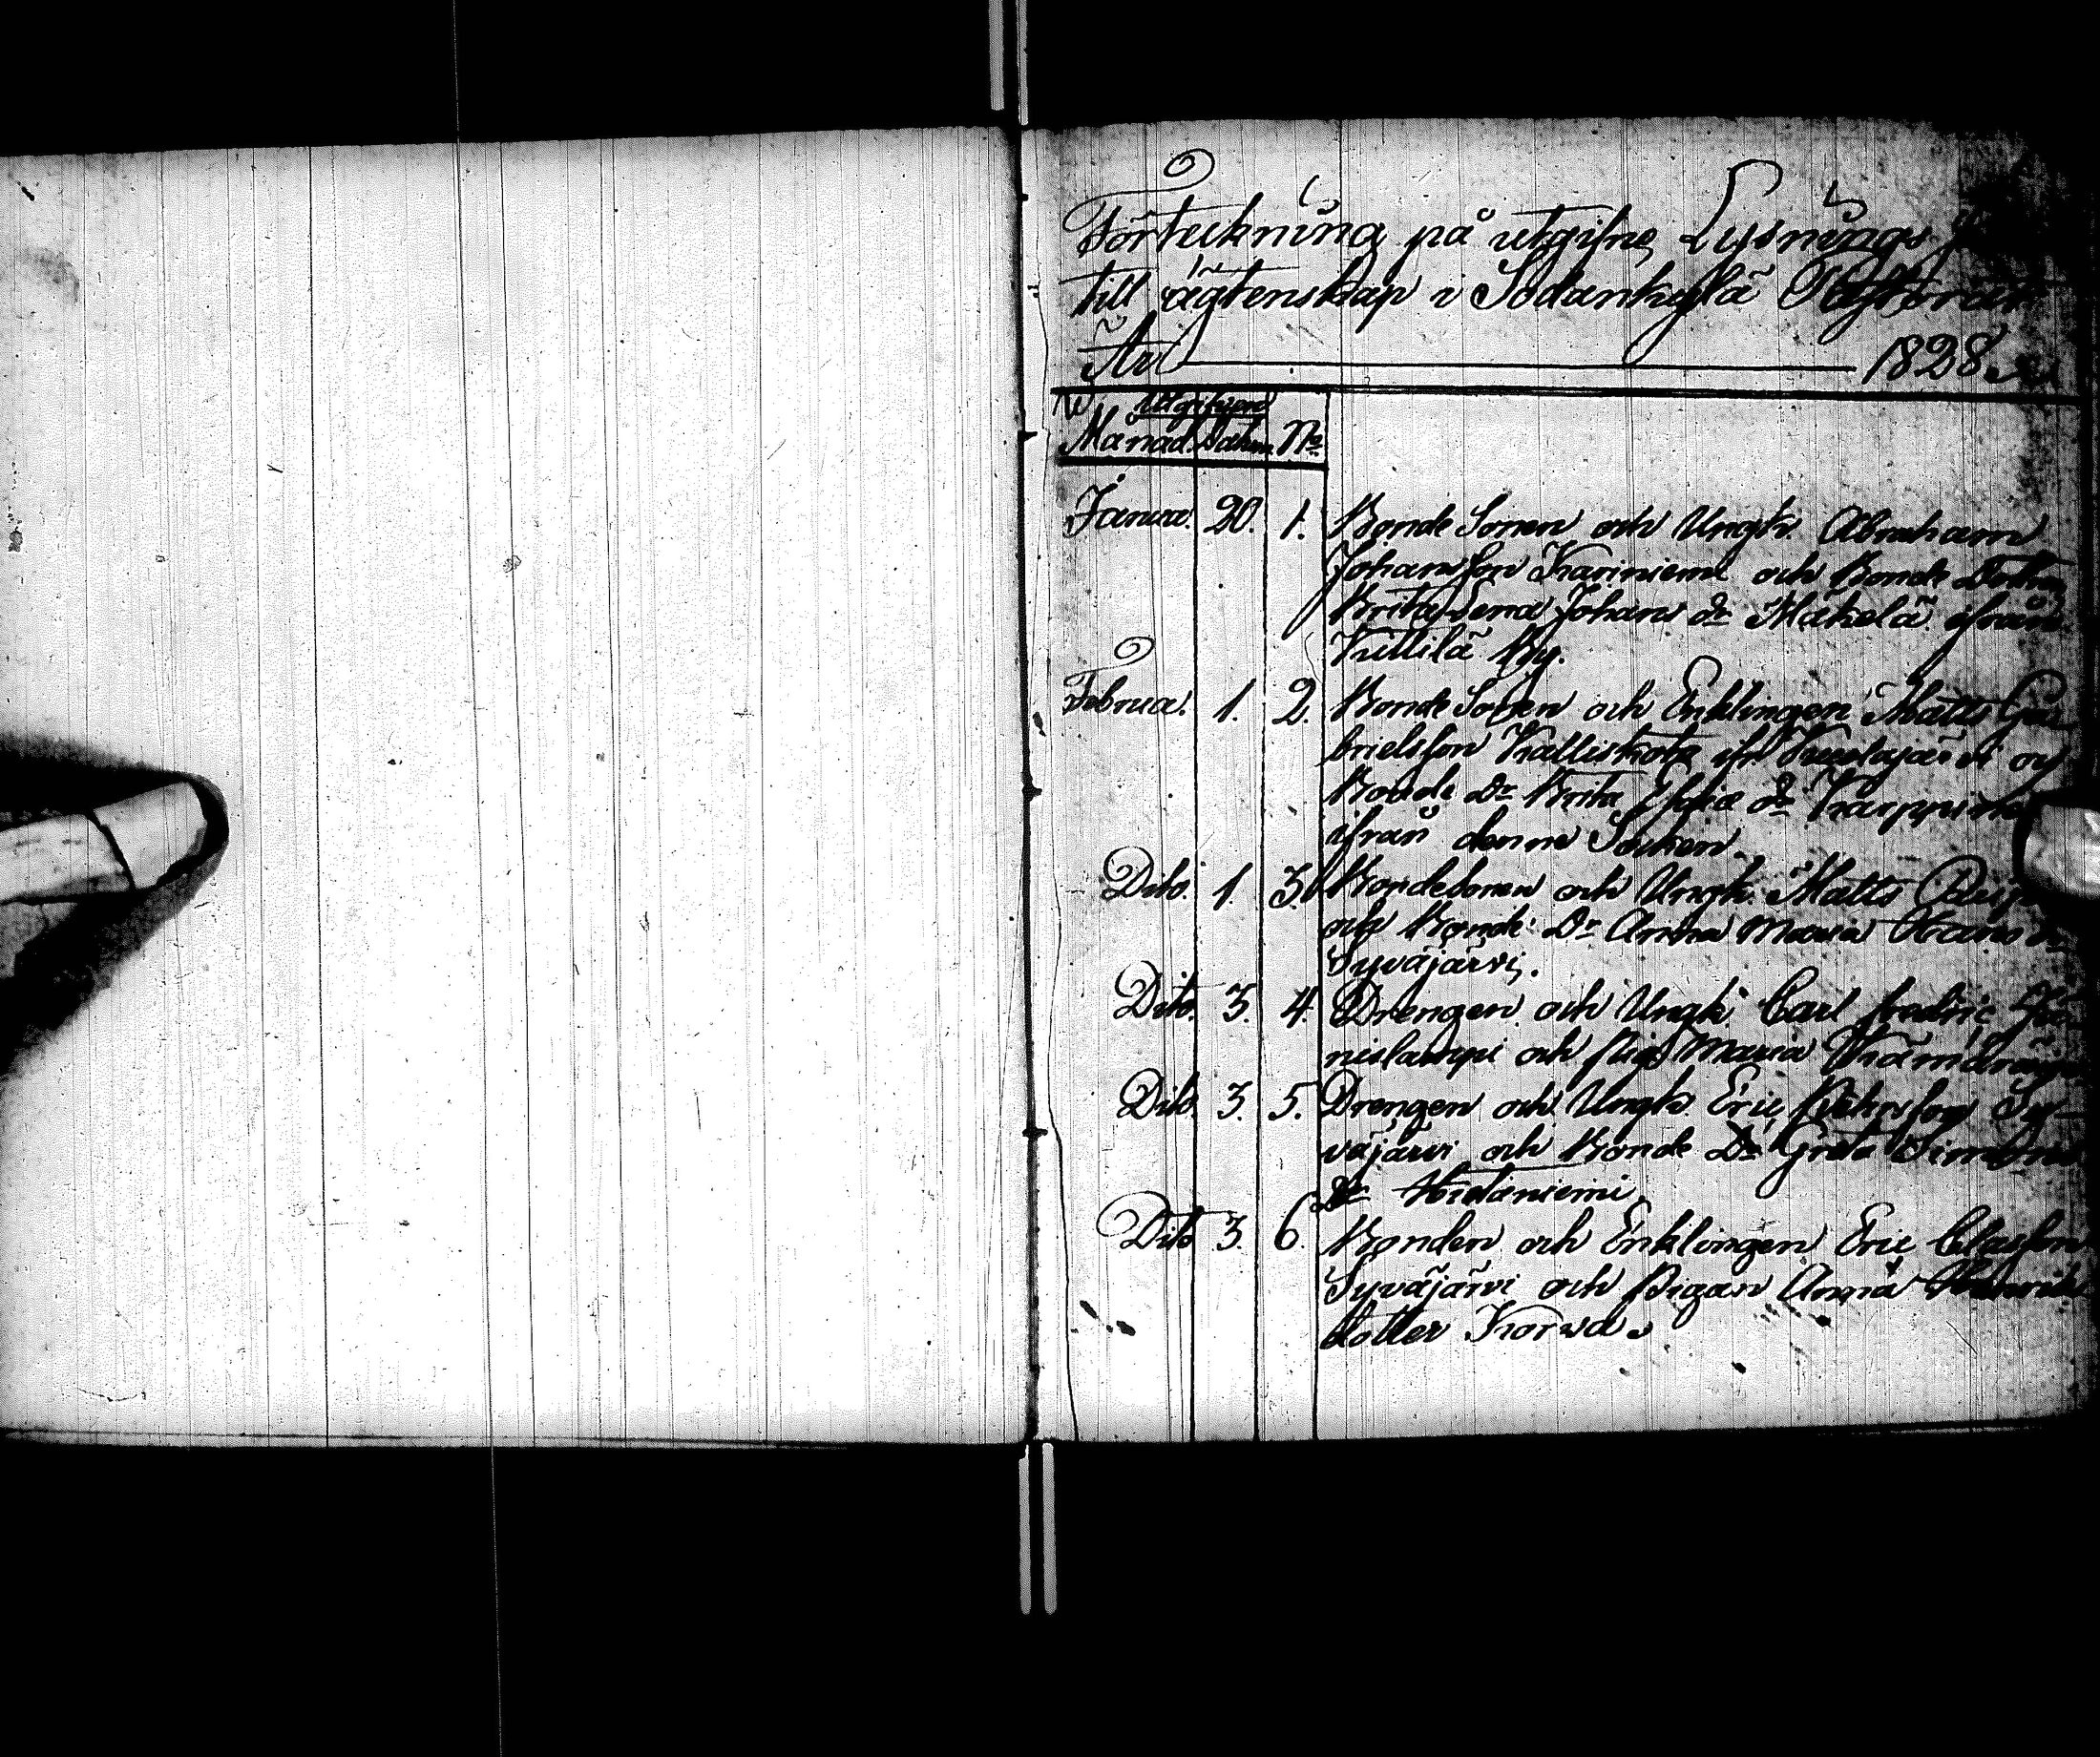 Förteckning på utgifne Lysnings
till ägtenskap i Sodankylä
År 1828.
Utgifven
Månad. Datum. No
Janua. 20. 1. Bonde Sonen och Ungk. Abraham
Johansson Kariniemi och Bonde Dottren
Brita Lena Johans dr Mäkelä ifrån
Kittilä By.
Februa. 1. 2. Bonde Sonen och Enklingen Matts Ga
brielsson Kalliskota ifr och
Bonde Dr Brita dr
ifrån denne Socken.
Dito. 1. 3. Bondesonen och Ungk. Matts
och Bonde Dr Anna Maria Hans
Syväjärvi.
Dito. 3. 4. Drengen och Ungk. Carl fredric
nislampi och Pig. Maria
Dito. 3. 5. Drengen och Ungk. Eric Pehrsson Sy-
väjärvi och Bonde Dr Greta Simons
Dr Hietaniemi.
Dito 3. 6. Bonden och Enklingen Eric Classon
Syväjärvi och Pigan Anna Henrics
dotter Korva.